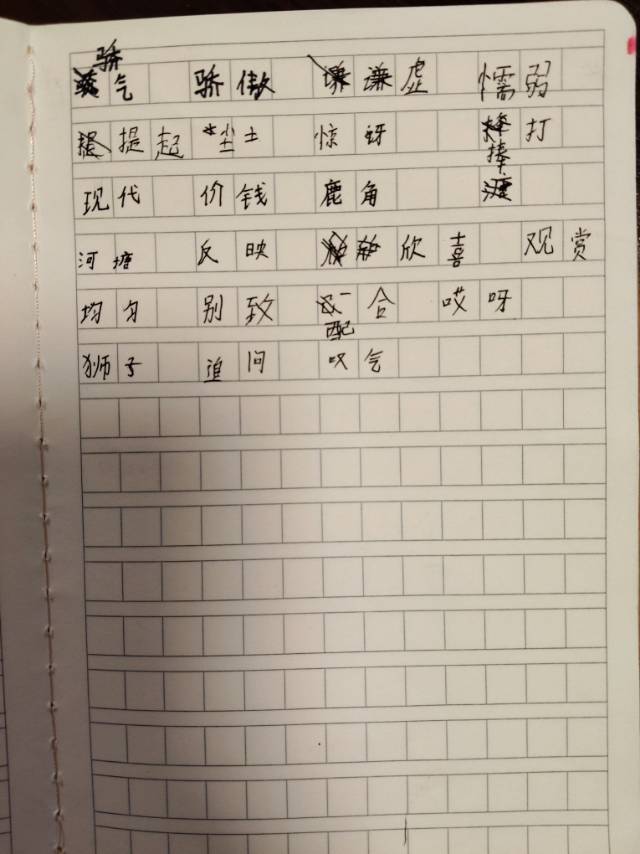 骄气 骄傲 谦虚 懦弱
提起 *尘土 惊讶 捧打
现代 价钱 鹿角
河塘 反映 欣喜 观赏
均匀 别致 配合 哎呀
狮子 追问 叹气